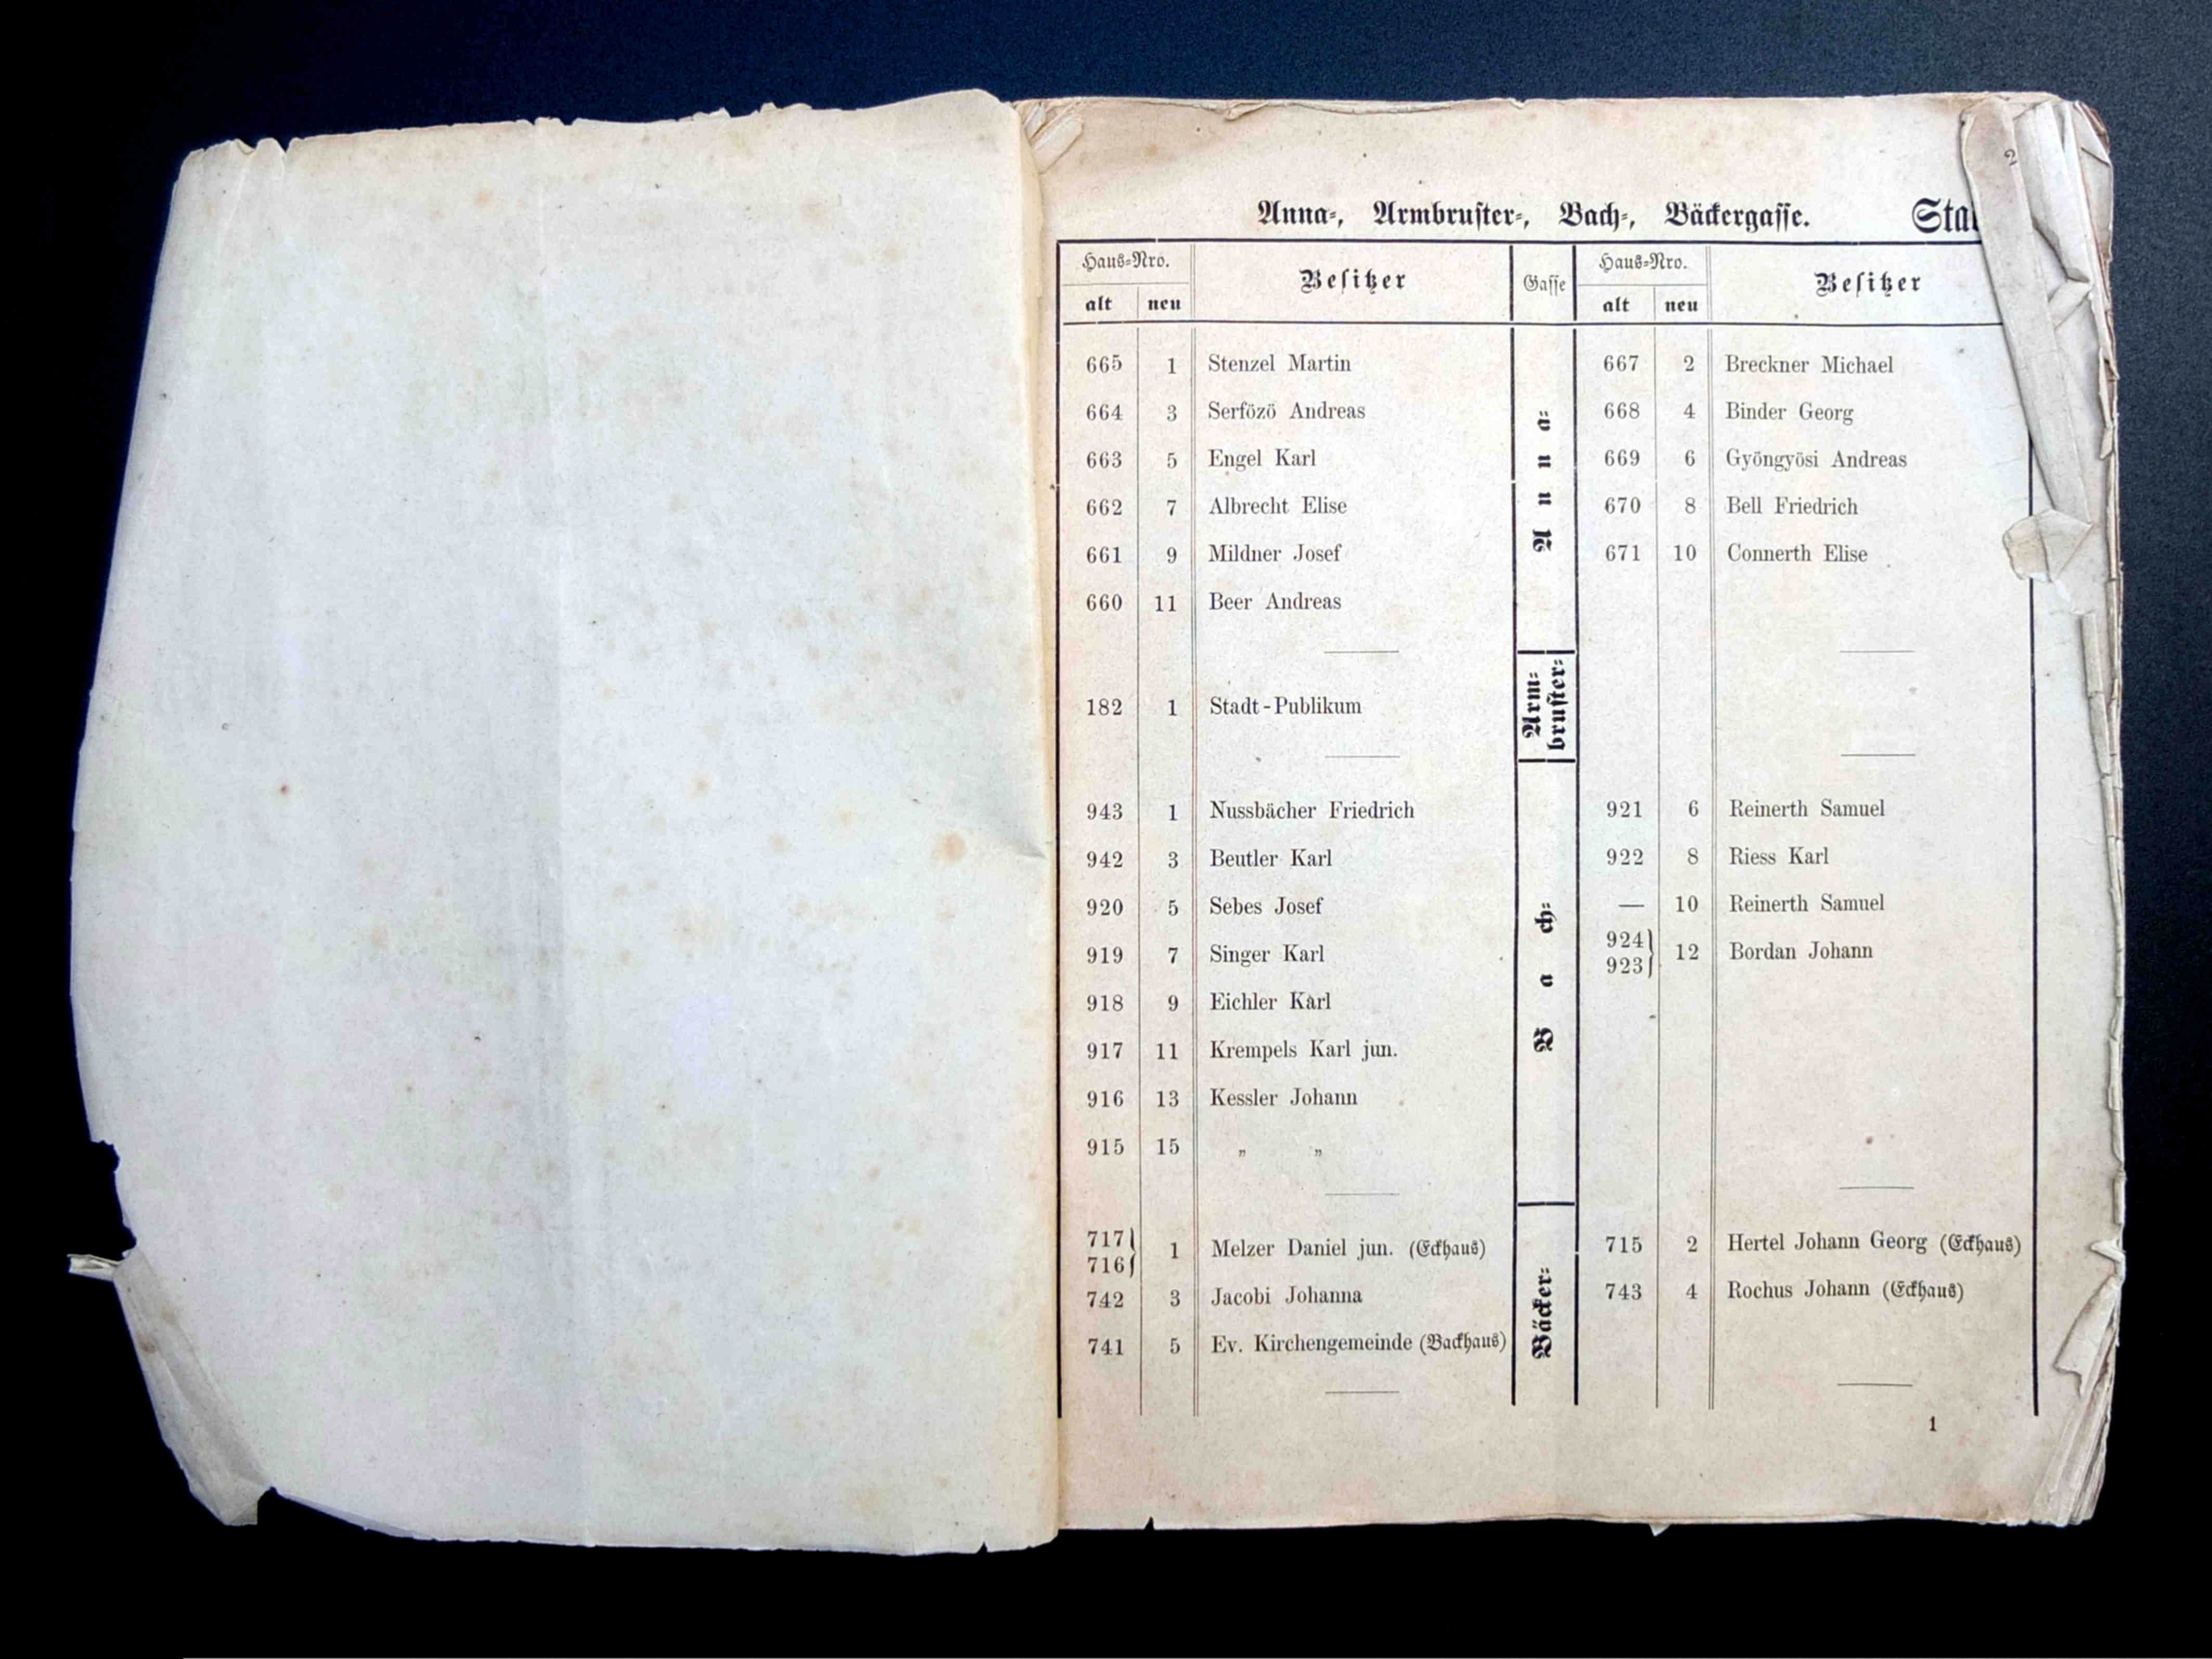 2
Anna-, Armbruster-, Bach-, Bäckergasse.
Haus-Nro. Besitzer Gasse Haus-Nro. Besitzer
alt neu alt neu
665 1 Stenzel Martin 667 2 Breckner Michael
664 3 Serfözö Andreas 668 4 Binder Georg
663 5 Engel Karl 669 6 Gyöngyösi Andreas
662 7 Albrecht Elise 670 8 Bell Friedrich
661 9 Mildner Josef 671 10 Connerth Elise
660 11 Beer Andreas
Anna-
182 1 Stadt-Publikum
Arm-
bruster-
943 1 Nussbächer Friedrich 921 6 Reinerth Samuel
942 3 Beutler Karl 922 8 Riess Karl
920 5 Sebes Josef — 10 Reinerth Samuel
919 7 Singer Karl 924 923 12 Bordan Johann
918 9 Eichler Karl
917 11 Krempels Karl jun.
916 13 Kessler Johann
915 15 „ „
Bach-
717 716 1 Melzer Daniel jun. (Eckhaus) 715 2 Hertel Johann Georg (Eckhaus)
742 3 Jacobi Johanna 743 4 Rochus Johann (Eckhaus)
741 5 Ev. Kirchengemeinde (Backhaus)
Bäcker-
1